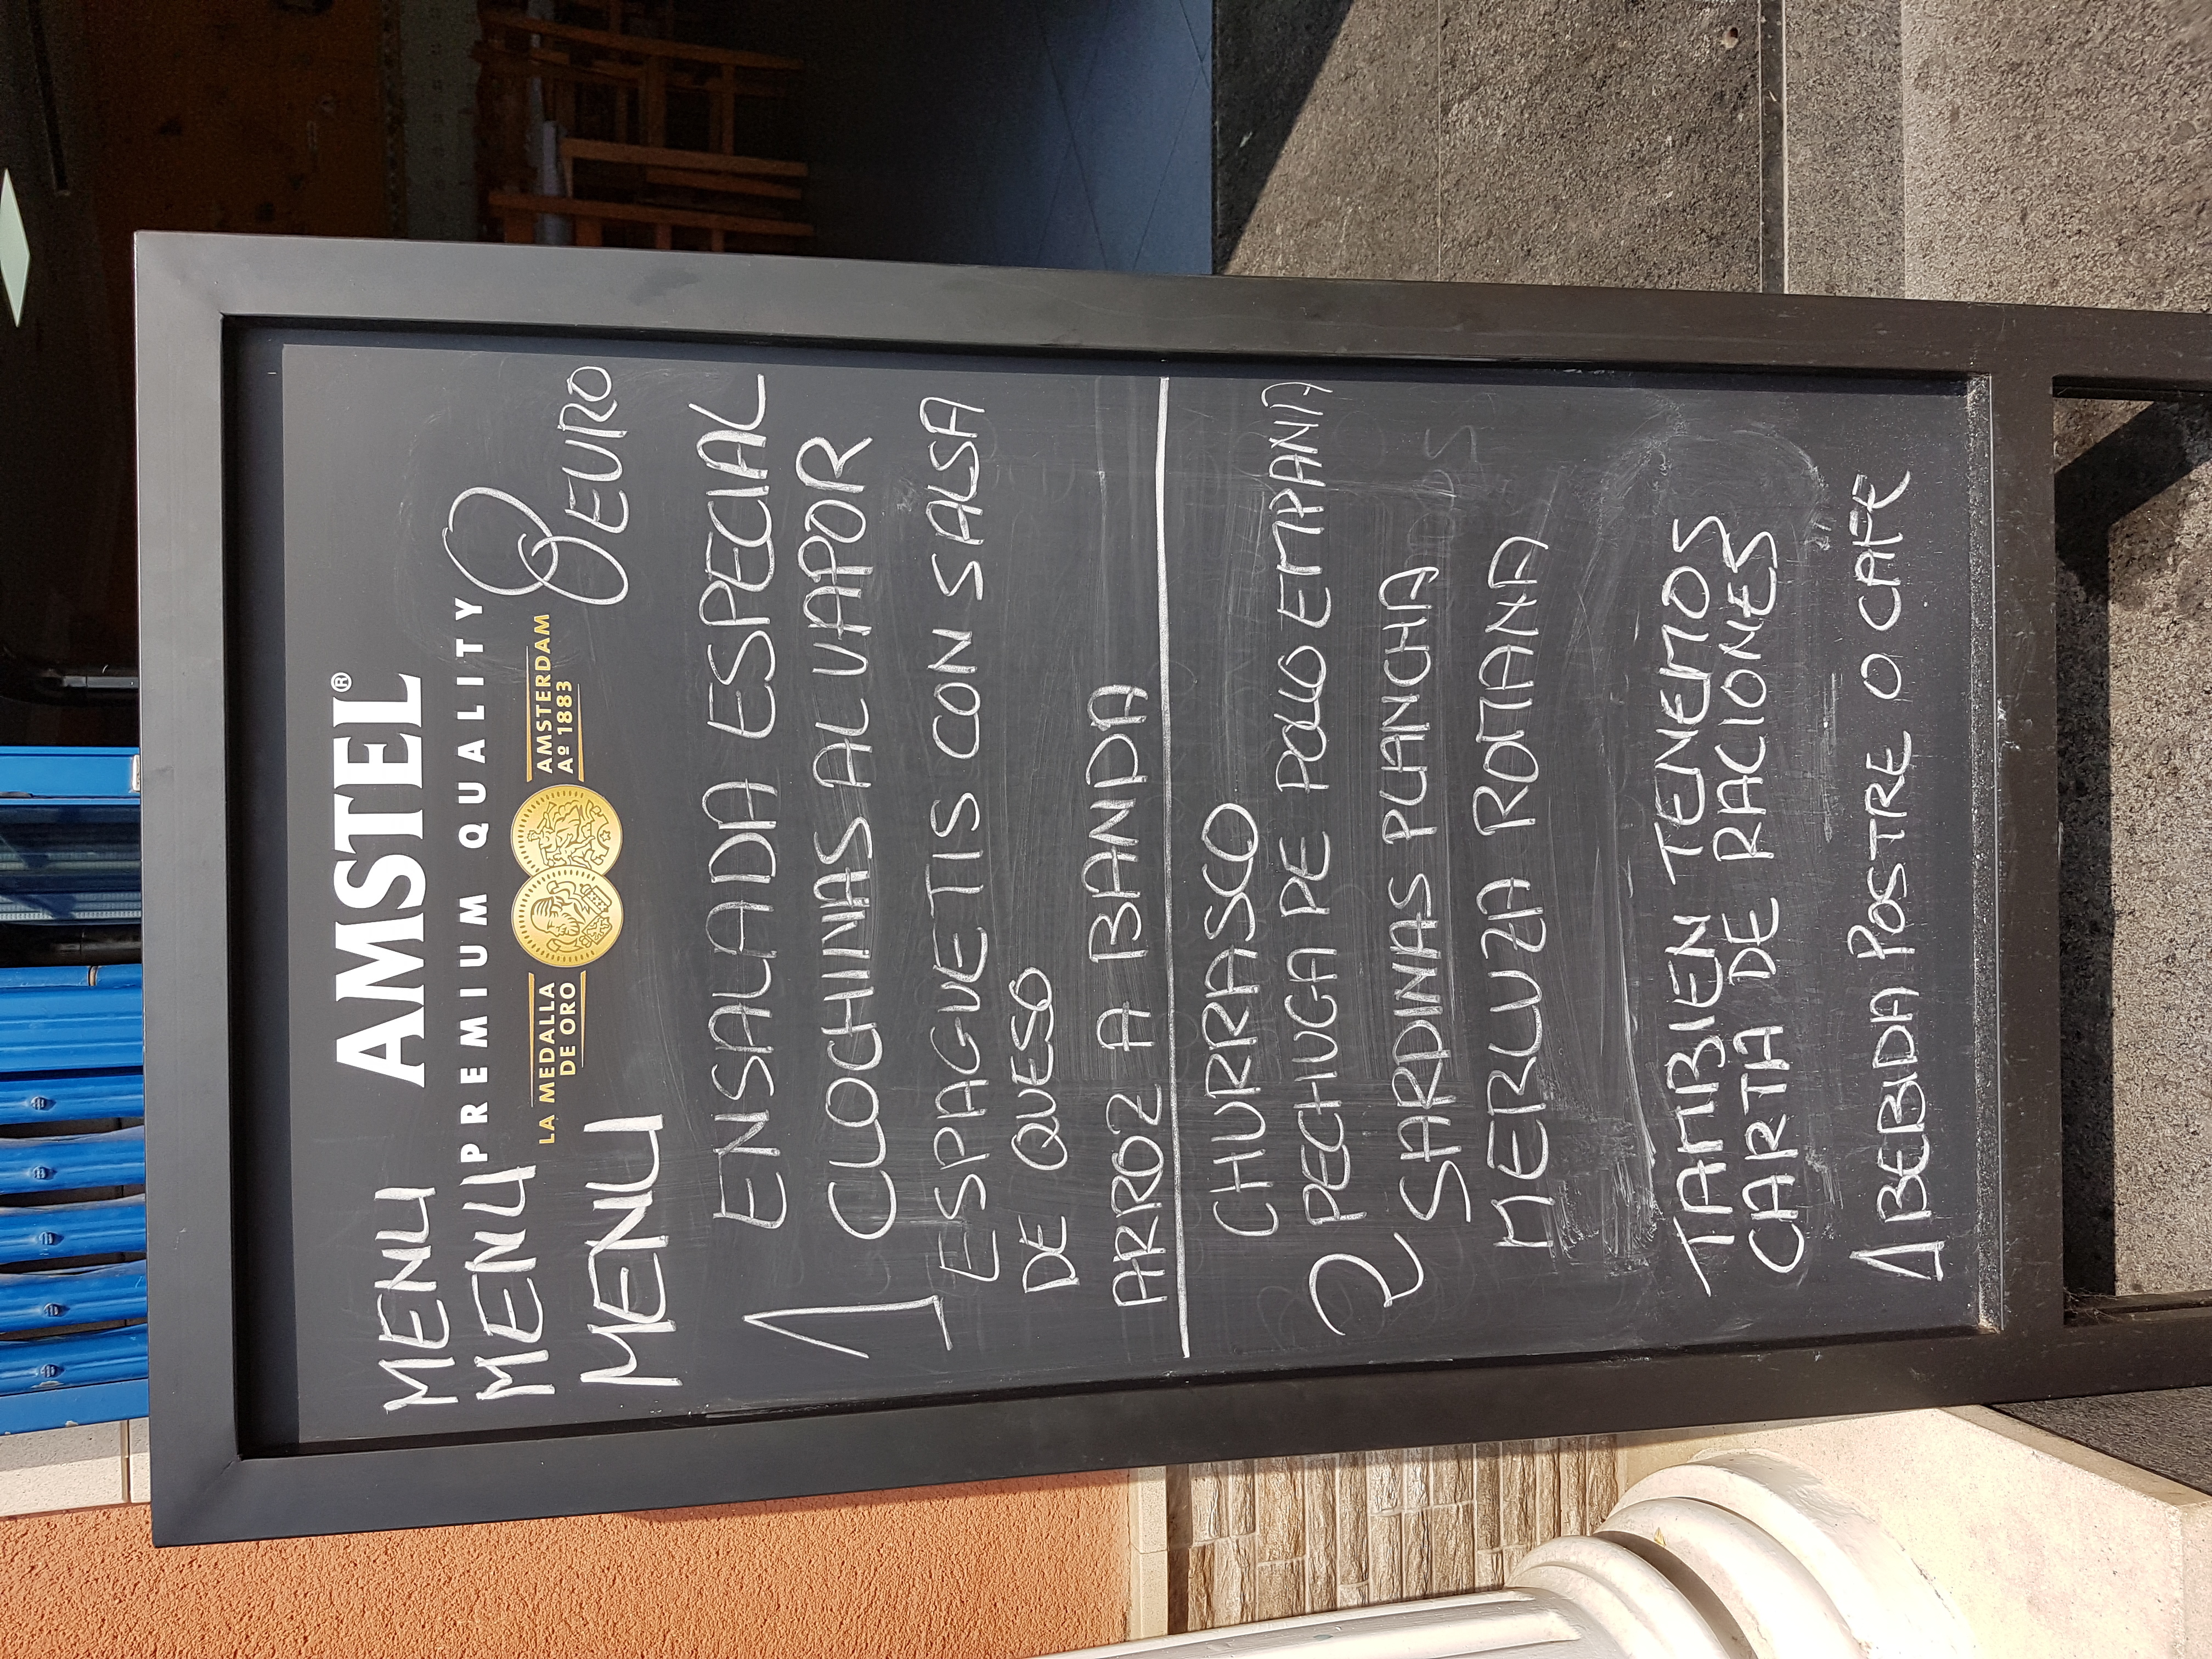 AMSTEL®
PREMIUM QUALITY
LA MEDALLA DE ORO
AMSTERDAM Aº 1883
MENU
MENU
MENU
8 EURO
1
ENSALADA ESPECIAL
CLOCHINAS AL VAPOR
ESPAGUETIS CON SALSA
DE QUESO
ARROZ A BANDA
2
CHURRASCO
PECHUGA DE POLLO EMPANA
SARDINAS PLANCHA
MERLUZA ROMANA
TAMBIEN TENEMOS
CARTA DE RACIONES
1 BEBIDA POSTRE O CAFE